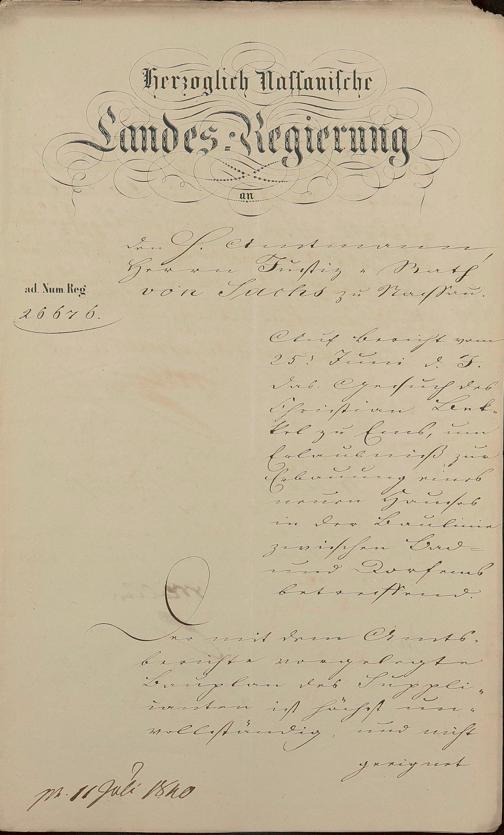 Herzoglich Nassauische
Landes-Regierung
an
den H. Amtmann,
Herrn Justiz-Rath
von Sachs zu Nassau.
ad. Num. Reg
26676.
Auf Bericht vom
25t Juni d. J.
das Gesuch des
Christian Bek-
kel zu Ems, um
Erlaubniß zur
Erbauung eines
neuen Hauses
in der Baulinie
zwischen Bad-
und Dorfems
betreffend.
Der mit dem Amts-
berichte vorgelegte
Bauplan des Suppli-
canten ist höchst un-
vollständig, und nicht
geeignet
pr. 11 Juli 1840